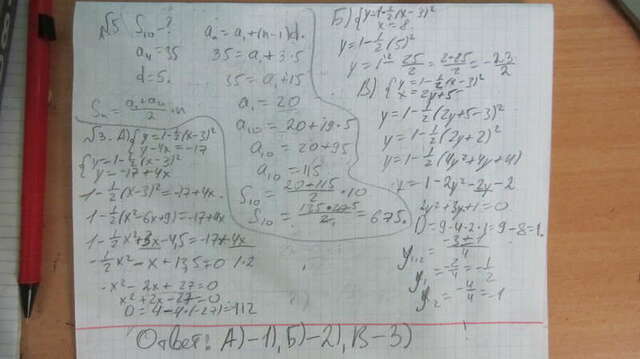 √5 S₁₀ - ?
a₄ = 35
d = 5.
aₙ = a₁ + (n-1)d.
35 = a₁ + 3·5
35 = a₁ + 15
a₁ = 20
a₁₀ = 20 + 19·5
a₁₀ = 20 + 95
a₁₀ = 115
S₁₀ = (20 + 115)/2 · 10
= 675.
Sₙ = (a₁ + aₙ)/2 · n
√3. А) { y = 1 - 1/2(x-3)²
y - 4x = -17
{ y = 1 - 1/2(x-3)²
y = -17 + 4x
1 - 1/2(x-3)² = -17 + 4x
1 - 1/2(x² - 6x + 9) = -17 + 4x
1 - 1/2x² + 3x - 4,5 = -17 + 4x
-1/2x² - x + 13,5 = 0 |·2
-x² - 2x + 27 = 0
x² + 2x - 27 = 0
D = 4 - 4·(-27) = 112
Б) { y = 1 - 1/2(x-3)²
x = 8
y = 1 - 1/2(5)²
y = 1 - 25/2 = = -23/2
В) { y = 1 - 1/2(x-3)²
x = 2y + 5
y = 1 - 1/2(2y + 5 - 3)²
y = 1 - 1/2(2y + 2)²
y = 1 - 1/2(4y² + 4y + 4)
y = 1 - 2y² - 2y - 2
2y² + 3y + 1 = 0
D = 9 - 4·2·1 = 9 - 8 = 1.
y₁,₂ = (-3 ± 1)/4
y₁ = -2/4 = -1/2
y₂ = -4/4 = -1
Ответ: А) - 1), Б) - 2), В - 3)